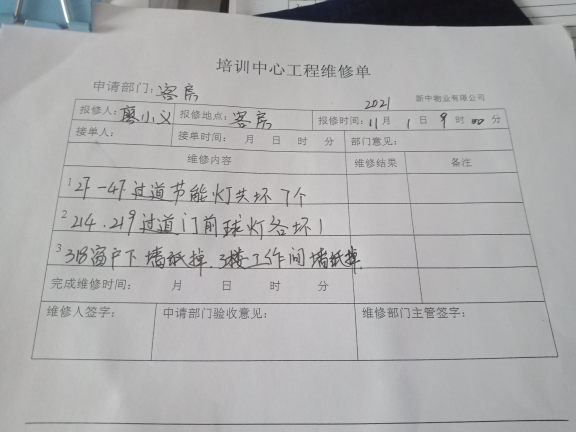 培训中心工程维修单
申请部门：客房
2021 新中物业有限公司
报修人：廖小义 报修地点：客房 报修时间：11月1日9时00分
接单人： 接单时间： 月 日 时 分 部门意见：
维修内容 维修结果 备注
1 2F-4F过道节能灯共坏7个
2 214.219过道门前球灯各坏1
3 318窗户下墙纸掉.3楼工作间墙纸掉.
完成维修时间： 月 日 时 分
维修人签字： 申请部门验收意见： 维修部门主管签字：